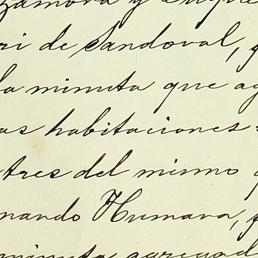 Zamora y
ri de Sandoval,
la minuta que ag
as habitaciones
tres del mismo
nando Humara, f
minuta agregad